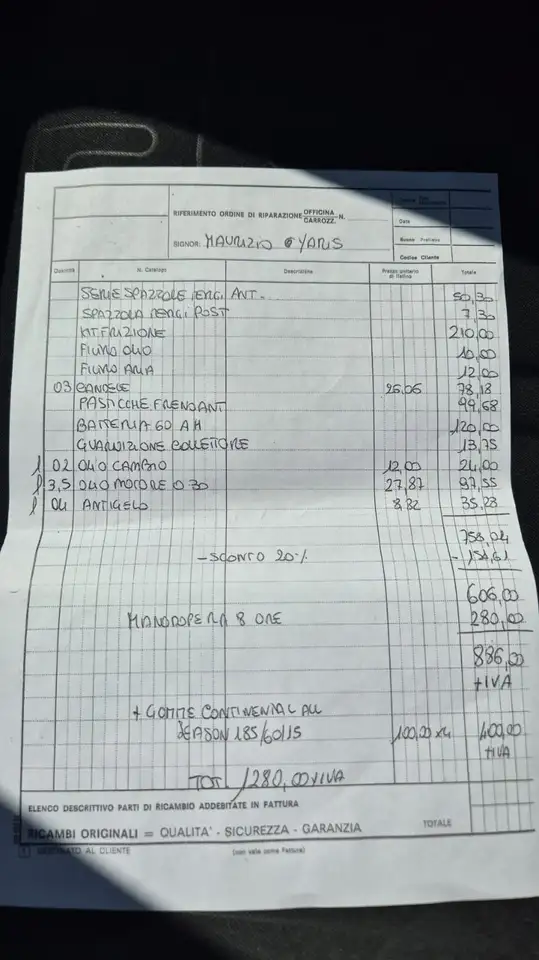 RIFERIMENTO ORDINE DI RIPARAZIONE OFFICINA CARROZZ. N.
SIGNOR: MAURIZIO YARIS
Data
Buono Prelievo
Codice Cliente
Quantità N. Catalogo Descrizione Prezzo unitario di listino Totale
SERIE SPAZZOLE TERGI ANT. 50,30
SPAZZOLA TERGI POST 7,30
KIT FRIZIONE 210,00
FILTRO OLIO 10,00
FILTRO ARIA 12,00
03 CANDELE 26,06 78,18
PASTICCHE FRENO ANT 99,68
BATTERIA 60 AH 120,00
GUARNIZIONE COLLETTORE 13,75
l 02 OLIO CAMBIO 12,00 24,00
l 3,5 OLIO MOTORE 0 30 27,87 97,55
l 04 ANTIGELO 8,82 35,28
758,04
- SCONTO 20% - 151,61
606,00
MANODOPERA 8 ORE 280,00
886,00
+IVA
+ GOMME CONTINENTAL ALL
SEASON 185/60/15 100,00 x4 400,00
+IVA
TOT 1280,00+IVA
ELENCO DESCRITTIVO PARTI DI RICAMBIO ADDEBITATE IN FATTURA
RICAMBI ORIGINALI = QUALITA' - SICUREZZA - GARANZIA TOTALE
AL CLIENTE (non vale come Fattura)